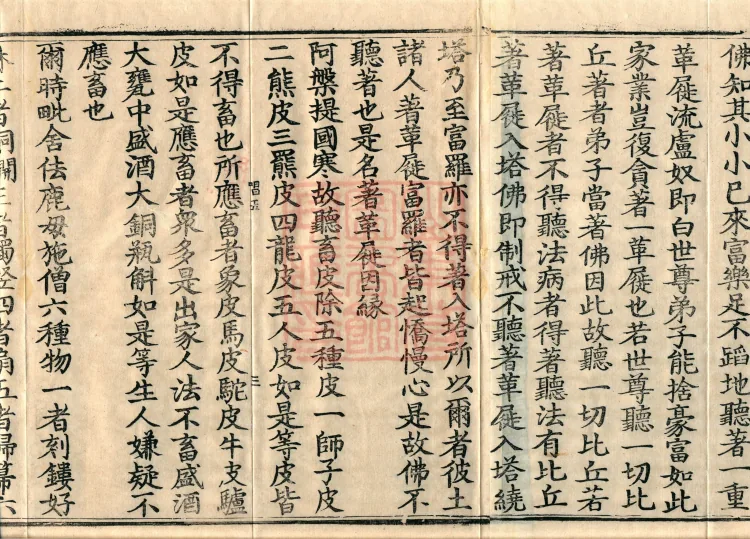 佛知其小小已來富樂足不蹈地聽著一重
革屣流盧奴即白世尊弟子能捨豪富如此
家業豈復貪著一革屣也若世尊聽一切比
丘著者弟子當著佛因此故聽一切比丘若
著革屣者不得聽法病者得著聽法有比丘
著革屣入塔佛即制戒不聽著革屣入塔繞
塔乃至富羅亦不得著入塔所以爾者彼土
諸人著革屣富羅者皆起憍慢心是故佛不
聽著也是名著革屣因緣
阿槃提國寒故聽畜皮除五種皮一師子皮
二熊皮三羆皮四龍皮五人皮如是等皮皆
不得畜也所應畜者象皮馬皮駝皮牛皮驢
皮如是應畜者衆多是出家人法不畜盛酒
大甕中盛酒大銅瓶斛如是等生人嫌疑不
應畜也
爾時毗舍佉鹿母施僧六種物一者刻鏤好
三